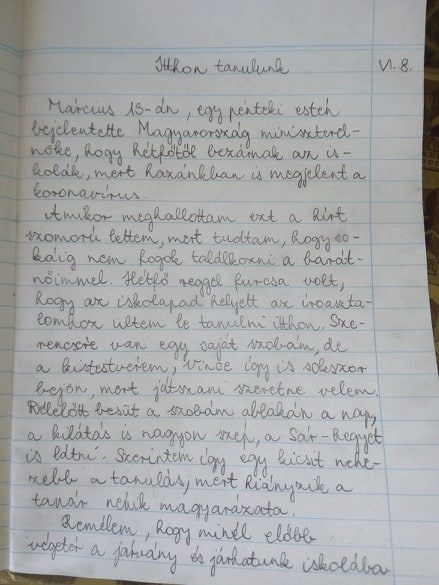 Itthon tanulunk VI. 8.
Március 13-án, egy pénteki estén
bejelentette Magyarország miniszterel-
nöke, hogy hétfőtől bezárnak az is-
kolák, mert hazánkban is megjelent a
koronavírus.
Amikor meghallottam ezt a hírt
szomorú lettem, mert tudtam, hogy so-
káig nem fogok találkozni a barát-
nőimmel. Hétfő reggel furcsa volt,
hogy az iskolapad helyett az íróaszta-
lomhoz ültem le tanulni itthon. Sze-
rencsére van egy saját szobám, de
a kistestvérem, Vince így is sokszor
bejön, mert játszani szeretne velem.
Délelőtt besüt a szobám ablakán a nap,
a kilátás is nagyon szép, a Sár-hegyet
is látni. Szerintem így egy kicsit nehe-
zebb a tanulás, mert hiányzik a
tanár nénik magyarázata.
Remélem, hogy minél előbb
végetér a járvány és járhatunk iskolába